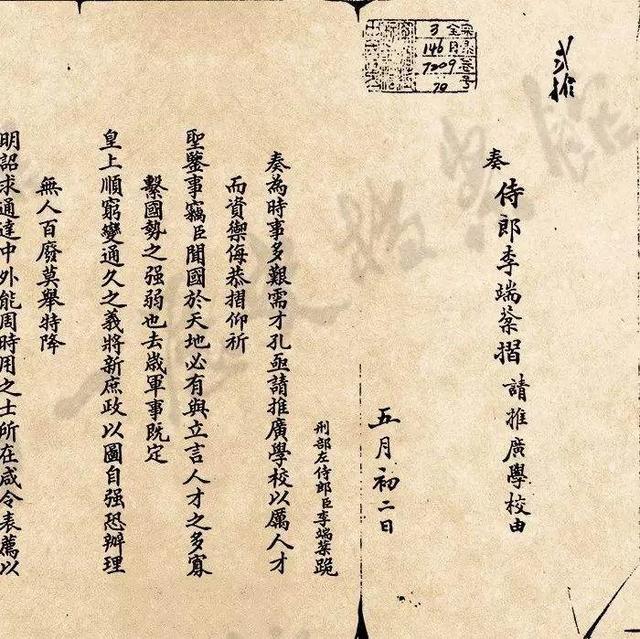 奏 侍郎李端棻摺 請推廣學校由
五月初二日
刑部左侍郎臣李端棻跪
奏為時事多艱需才孔亟請推廣學校以厲人才
而資禦侮恭摺仰祈
聖鑒事竊臣聞國於天地必有與立言人才之多寡
繫國勢之强弱也去歲軍事既定
皇上順窮變通久之義將新庶政以圖自强恐辦理
無人百廢莫舉特降
明詔求通達中外能周時用之士所在咸令表薦以
3
146
7209
70